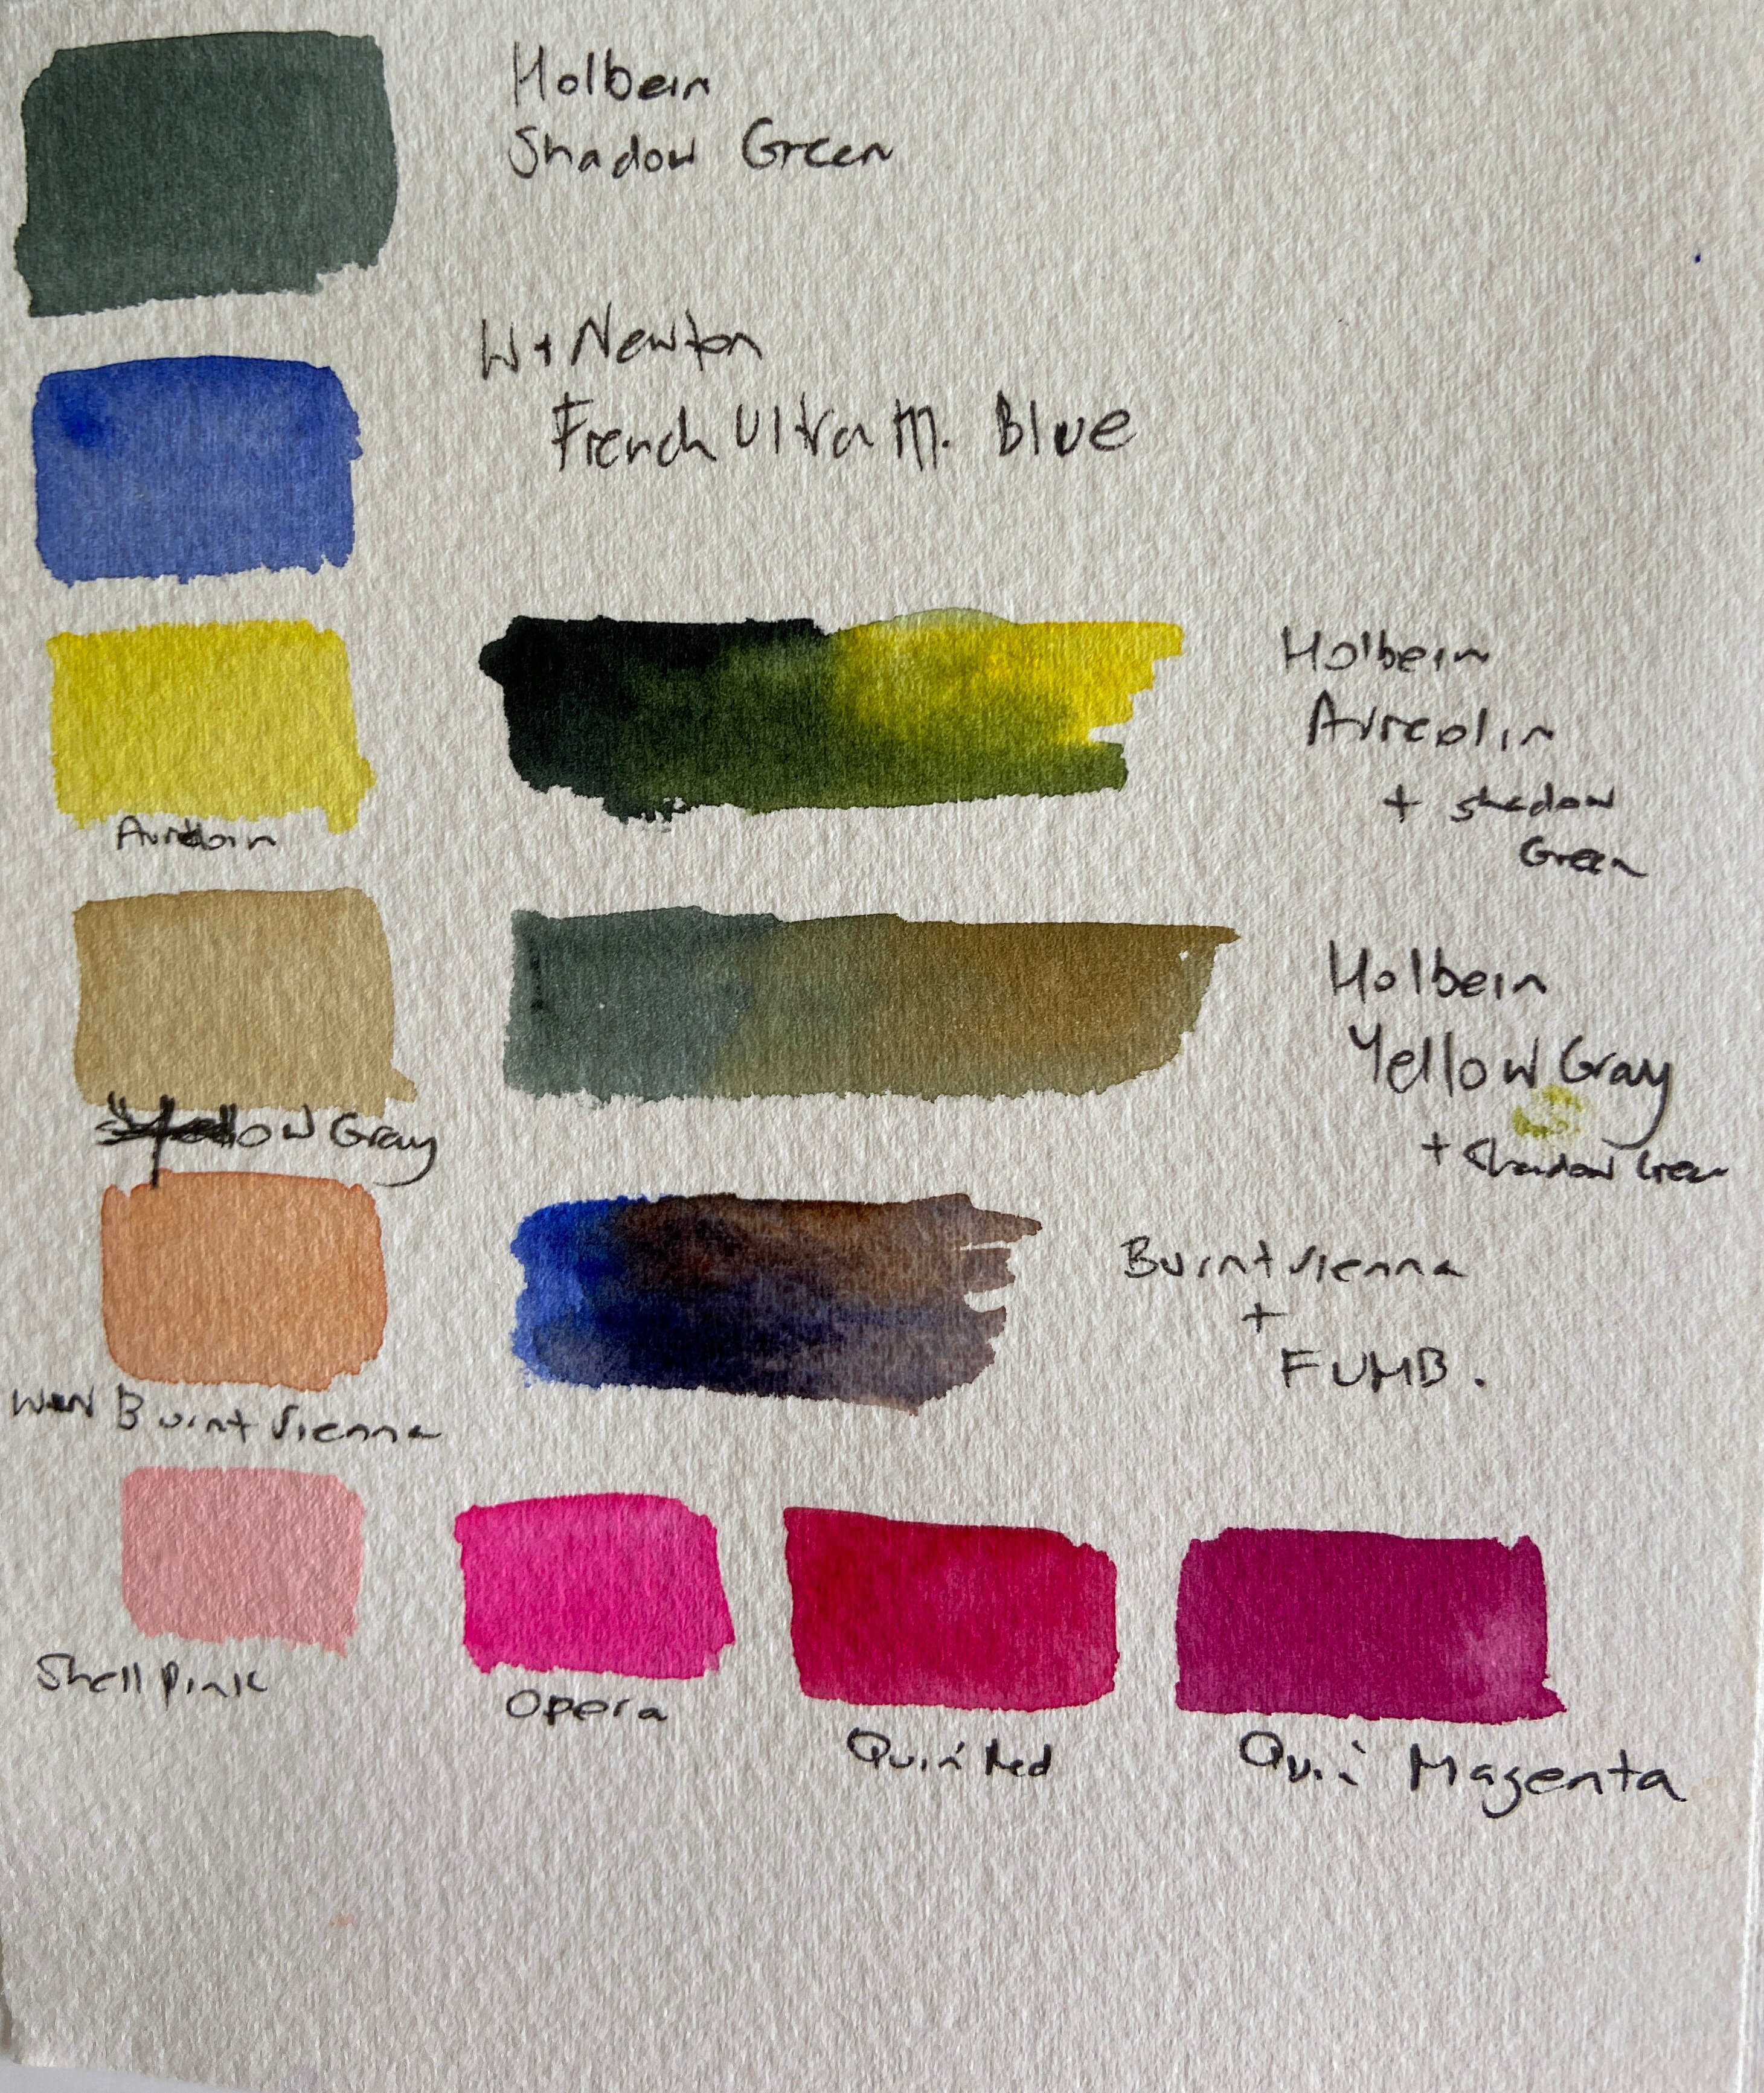 Holbein
Shadow Green
W + Newton
French Ultra M. Blue
Holbein
Aureolin
+ shadow
Green
Aureolin
Holbein
Yellow Gray
+ Shadow Green
Yellow Gray
Burnt Sienna
+
FUMB.
W&N Burnt Sienna
Shell Pink
Opera
Quin Red
Qui: Magenta